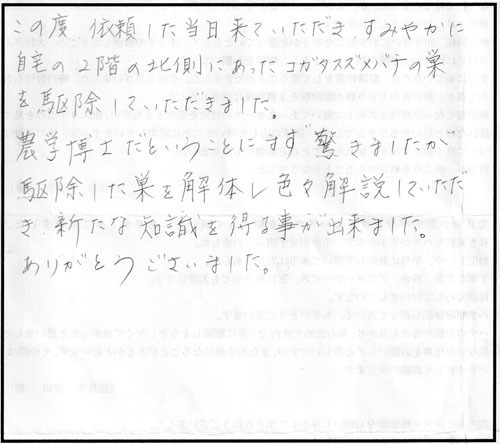 この度、依頼した当日来ていただき すみやかに
自宅の2階の北側にあったコガタスズメバチの巣
を駆除していただきました。
農学博士だということにまず驚きましたが
駆除した巣を解体し色々解説していただ
き、新たな知識を得る事が出来ました。
ありがとうございました。